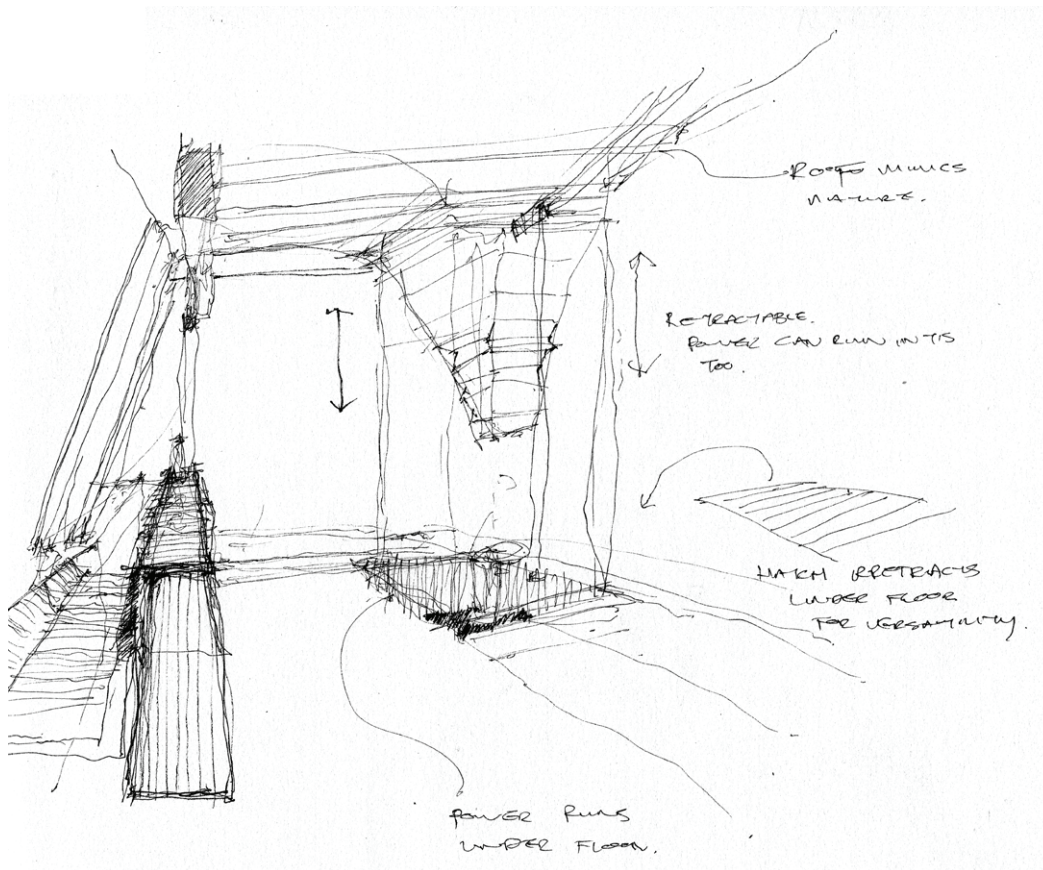 ROOF MIMICS
NATURE.
RETRACTABLE.
POWER CAN RUN IN TIS
TOO.
HATCH RRETRACTS
UNDER FLOOR
FOR VERSATILITY.
POWER RUNS
UNDER FLOOR.